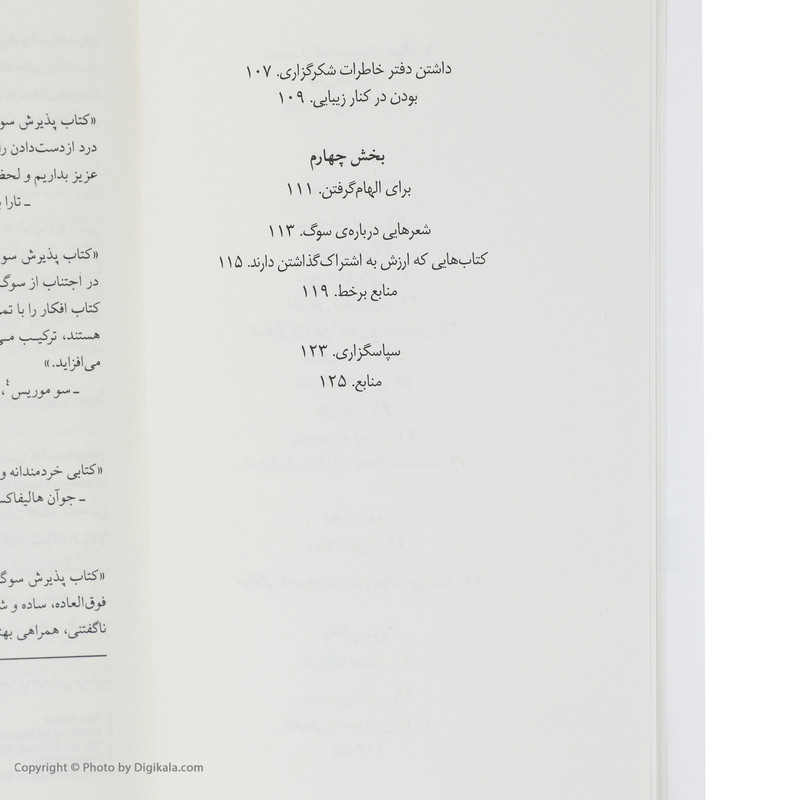 داشتن دفتر خاطرات شکرگزاری. ۱۰۷
بودن در کنار زیبایی. ۱۰۹
بخش چهارم
برای الهام‌گرفتن. ۱۱۱
شعرهایی درباره‌ی سوگ. ۱۱۳
کتاب‌هایی که ارزش به اشتراک‌گذاشتن دارند. ۱۱۵
منابع برخط. ۱۱۹
سپاسگزاری. ۱۲۳
منابع. ۱۲۵
«کتاب پذیرش
درد ازدست‌دادن
عزیز بداریم و
ـ تارا
«کتاب پذیرش سوگ
در اجتناب از سوگ
کتاب افکار را با
هستند، ترکیب
می‌افزاید.»
ـ سو موریس۴،
«کتابی خردمندانه و
ـ جوآن
«کتاب پذیرش سوگ
فوق‌العاده، ساده و
ناگفتنی، همراهی
Copyright © Photo by Digikala.com